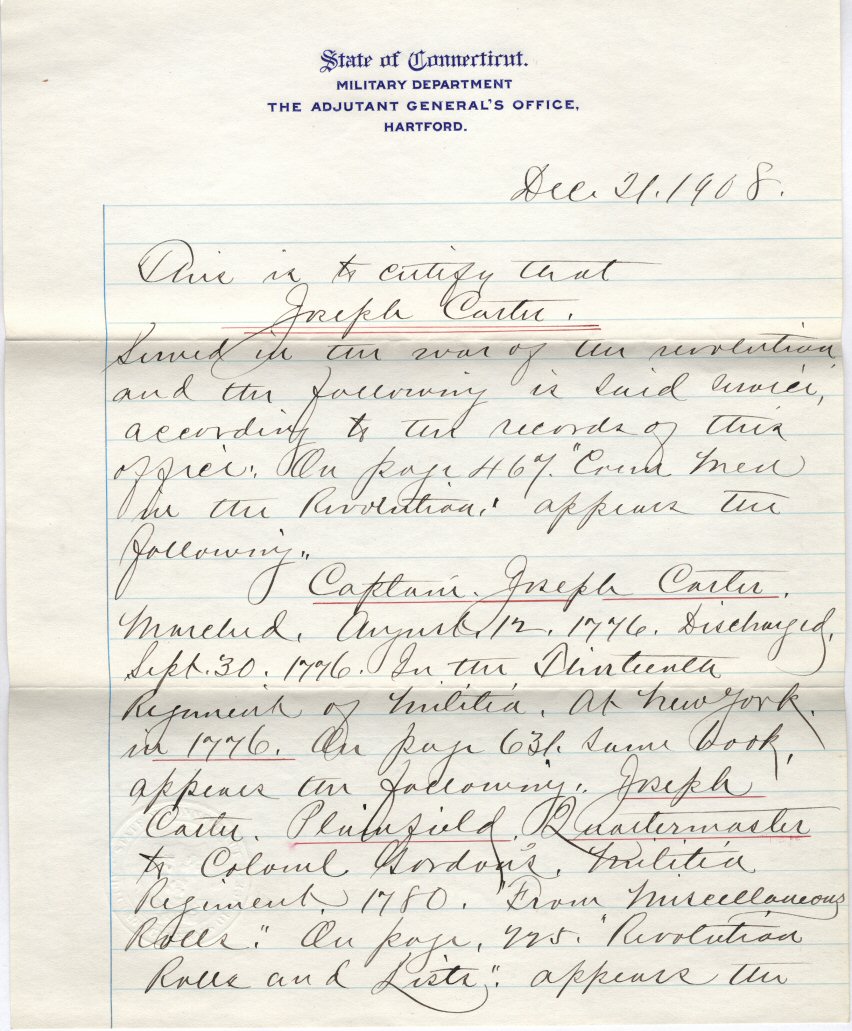 State of Connecticut.
MILITARY DEPARTMENT
THE ADJUTANT GENERAL'S OFFICE,
HARTFORD.
Dec. 21. 1908.
This is to certify that
Joseph Carter.
Served in the war of the revolution
and the following is said service,
according to the records of this
office: On page 467. "Conn Men
in the Revolution." appears the
following.
Captain. Joseph Carter.
Marched. August. 12. 1776. Discharged,
Sept. 30. 1776. In the Thirteenth
Regiment of Militia. At New York.
in 1776. On page 631. same book,
appears the following: Joseph
Carter. Plainfield. Quartermaster
to Colonel Gordon's. Militia
Regiment. 1780. "From Miscellaneous
Rolls". On page, 225. "Revolution
Rolls and Lists". appears the